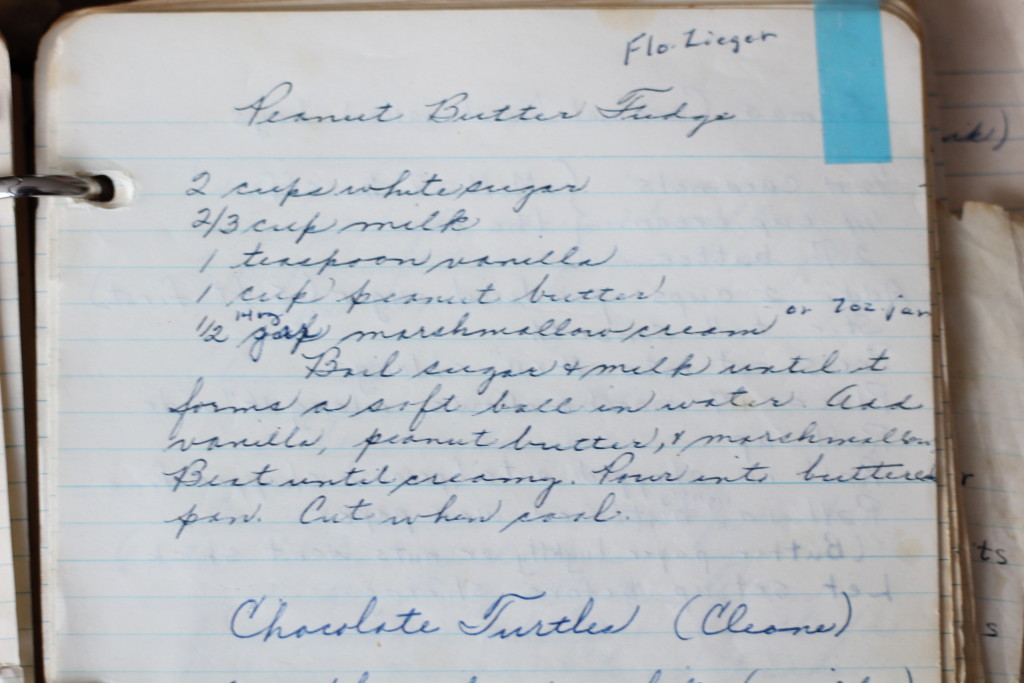 Flo. Zieger
Peanut Butter Fudge
2 cups white sugar
2/3 cup milk
1 teaspoon vanilla
1 cup peanut butter
1/2 14 oz jar marshmallow cream or 7 oz. jar
Boil sugar & milk until it
forms a soft ball in water. Add
vanilla, peanut butter, & marshmallow
Beat until creamy. Pour into buttered
pan. Cut when cool.
Chocolate Turtles (Cleone)